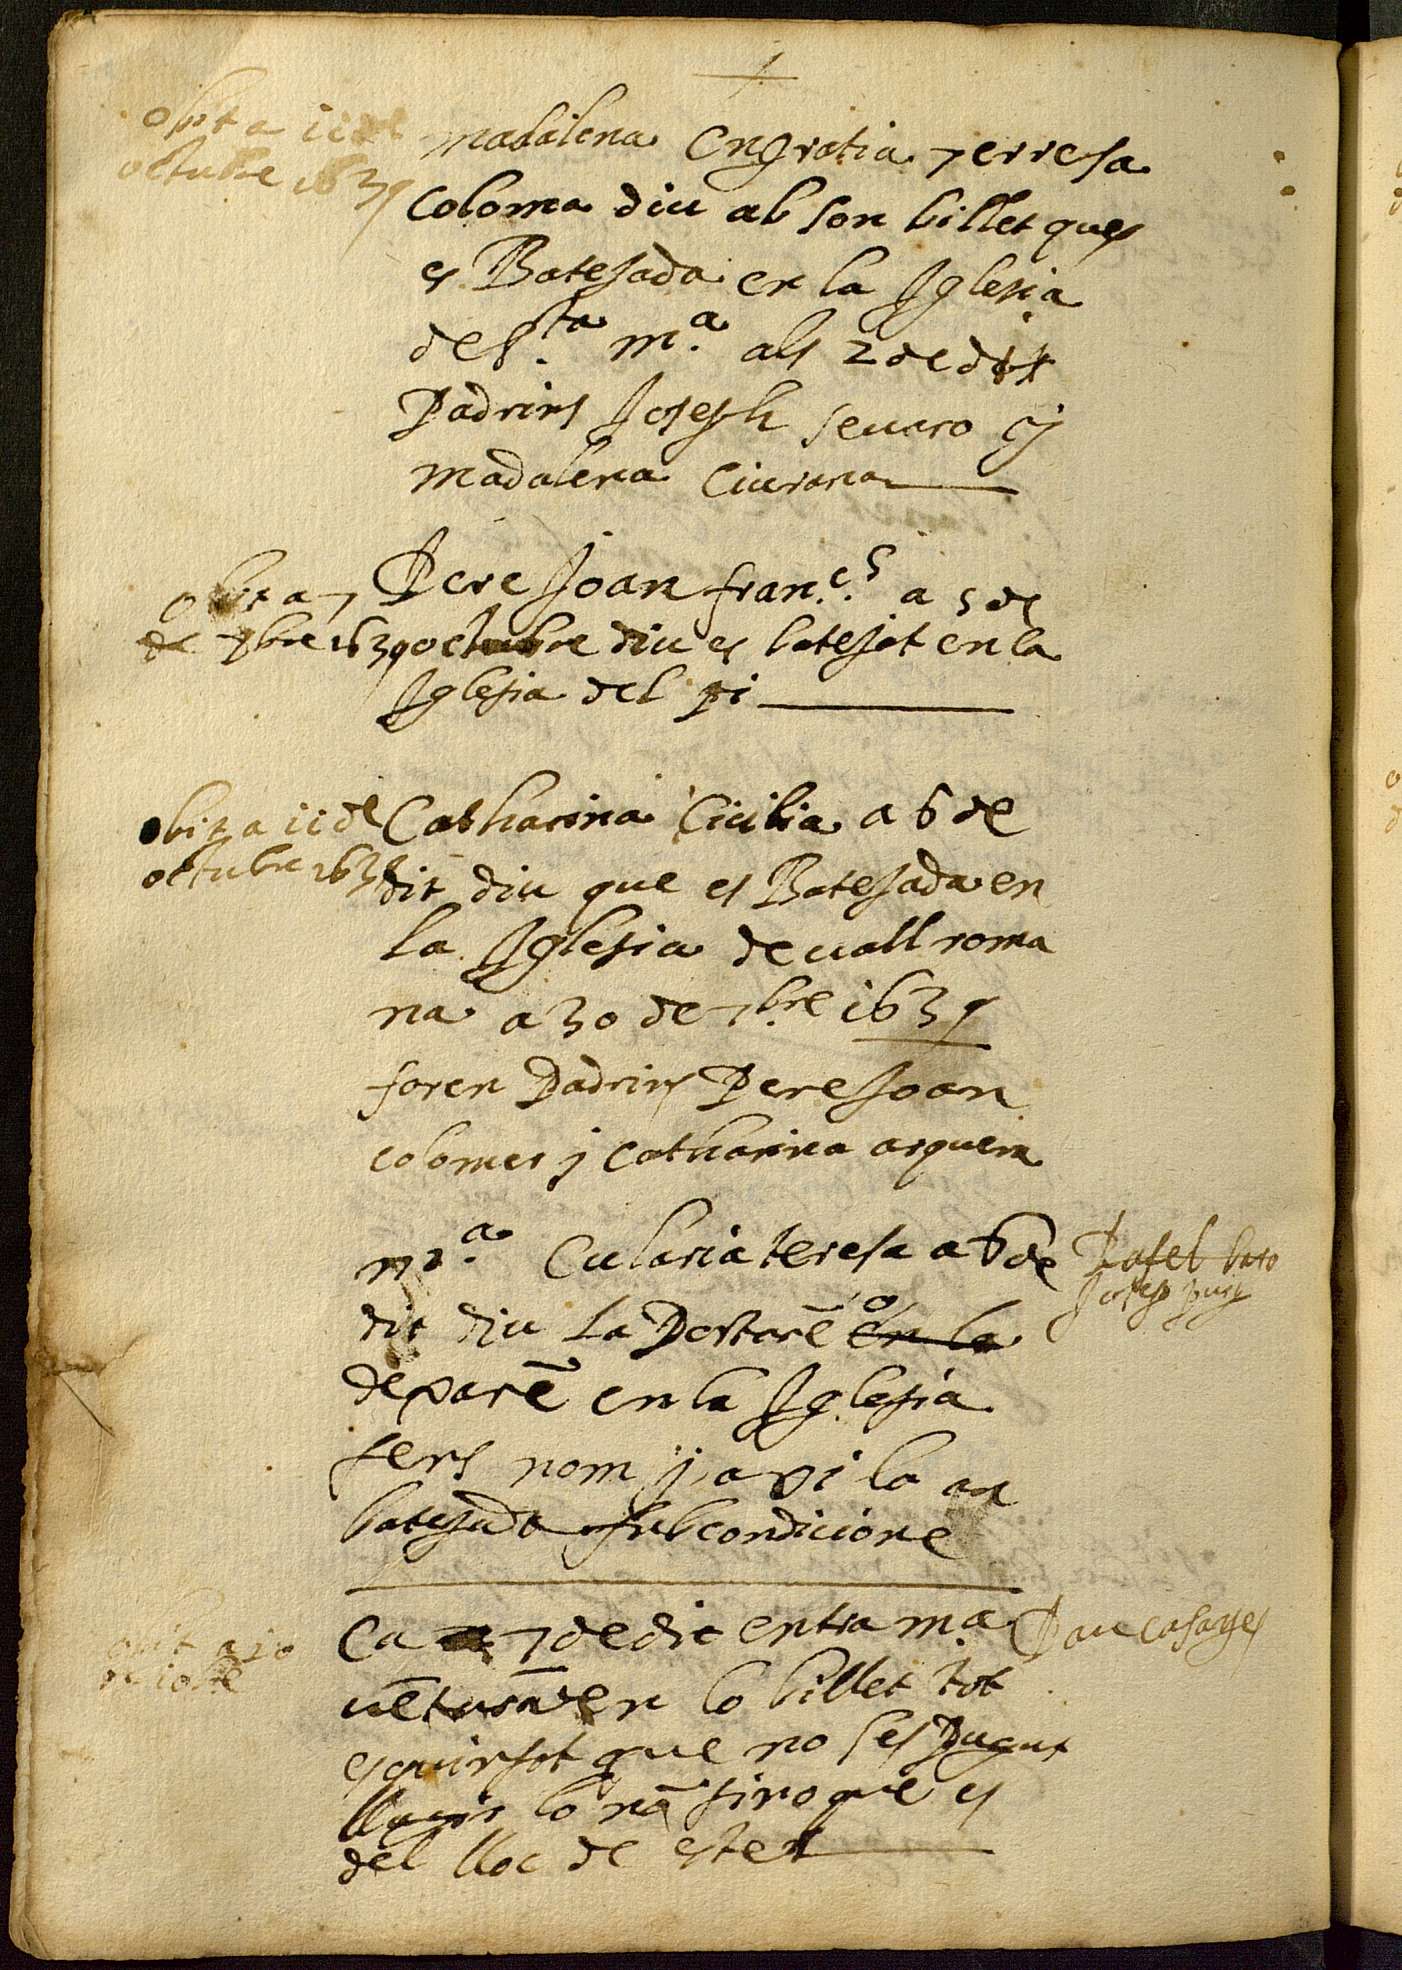 obit a 11 de
octubre 1639
Madalena Engratia Terresa
Coloma diu ab son billet ques
es Batejada en la Iglesia
de S.ta M.a als 2 de dit
Padrins Joseph sevaro y
Madalena Ciurana
obit a 7
de 9bre 1639
Pere Joan fran.cs a 5 de
octubre diu es batejat en la
Iglesia del pi
obit a 11 de
octubre 1639
Catharina Cicilia a 6 de
dit diu que es Batejada en
la Iglesia de vall roma
na a 30 de 7bre 1639
foren Padrins Pere Joan
colomer j Catharina arquera
M.a Eularia teresa a 6 de
dit diu la Portarē en la
dexarē en la Iglesia
sens nom y axi la an
batejada subcondicione
Rafel baro
Josep puig
obit a 10
de 10bre
Ca 7 de dit entra m.a
vētura en lo billet tot
esquinsat que no ses pugut
llegir lo nō sino que es
del lloc de ester
Pau casayes